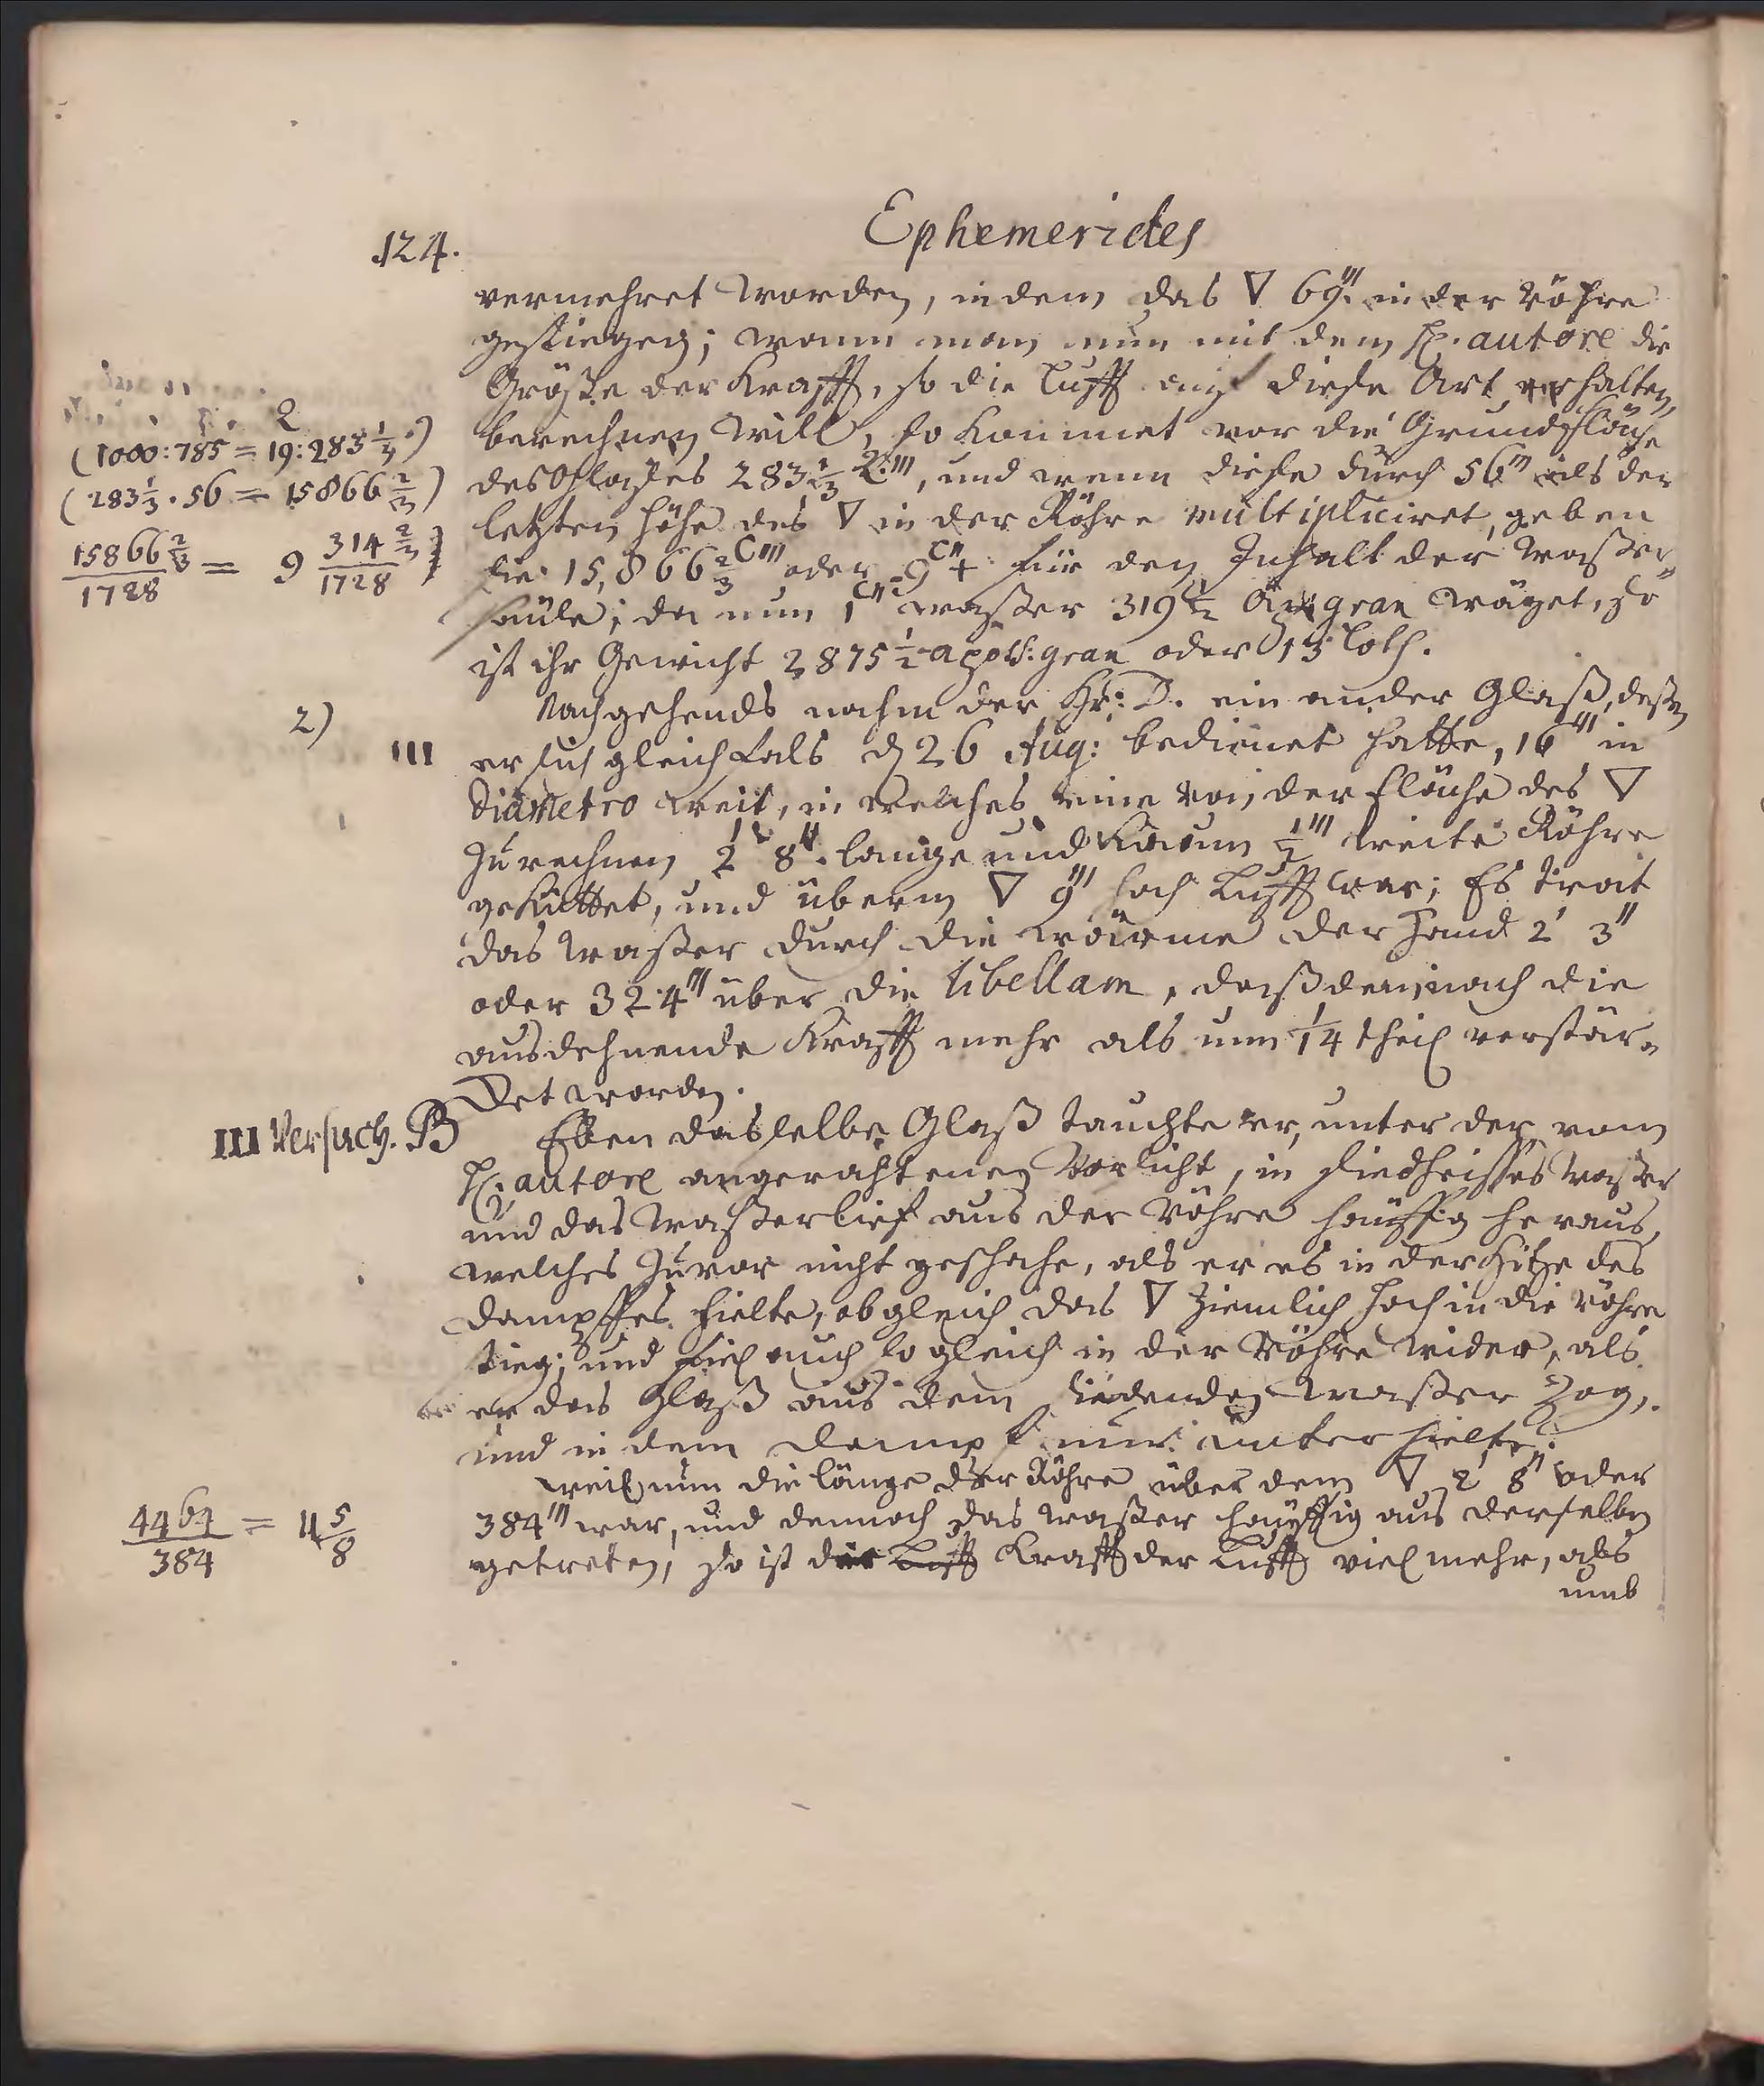 124.
Ephemerides
vermehret worden, indem das ▽ 69''' in der Röhre
gestiegen; wann man nun mit dem H. autore die
Größe der Krafft, so die Lufft auf diese Art erhalten,
berechnen will, so kommet vor die Grundfläche
des Glases 283 1/3 Q.''', und wenn diese durch 56''' als der
letzten Höhe des ▽ in der Röhre multipliciret, geben
die 15,866 2/3 C''' oder 9 C'' + für den Inhalt der Waßer-
säule; da nun 1 C'' Waßer 319 1/2 gran wäget, so
ist ihr Gewicht 2875 1/2 apoth: gran oder 13 Loth.
(1000:785 = 19:283 1/3.)
(283 1/3 . 56 = 15866 2/3)
15866 2/3 / 1728 = 9 314 2/3 / 1728
2)
Nachgehends nahm der Hr: D. ein ander Glaß, deßen
III
er sich gleichfals d 26 Aug: bedienet hatte, 16''' in
Diametro weit, in welches eine von der Fläche des ▽
zu rechnen 2' 8'' lange und kaum 1/2''' weite Röhre
geküttet, und überm ▽ 9''' hoch Lufft war; Es trat
das Waßer durch die wärme der Hand 2' 3''
oder 324''' über die libellam, daß demnach die
ausdehnende Krafft mehr als um 1/14 theil verstär-
ket worden.
III Versuch. B
Eben dasselbe Glaß tauchte er, unter der vom
H. autore angerahtenen Vorsicht, in siedheisses Waßer
und das Waßer lief aus der Röhre häuffig heraus,
welches zuvor nicht geschahe, als er es in der Hitze des
Dampffes hielte, obgleich das ▽ ziemlich hoch in die Röhre
stieg; und fiel auch so gleich in der Röhre wider, als
er das Glaß aus dem siedenden Waßer zog,
und in dem Dampf nur unter hielte.
Weil nun die länge der Röhre über dem ▽ 2' 8'' oder
384''' war, und dennoch das Waßer häuffig aus derselben
getreten, so ist die Krafft der Lufft viel mehr, als
umb
4464 / 384 = 11 5/8